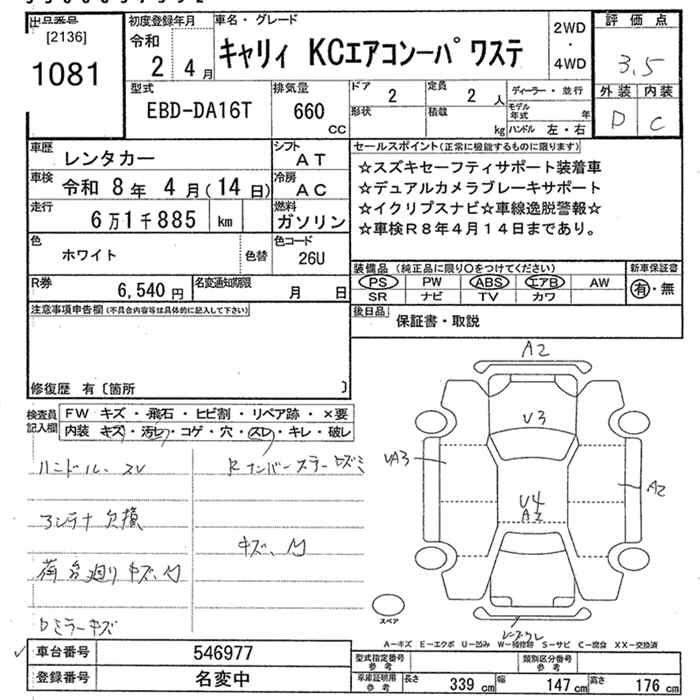 出品番号
[2136]
1081
初度登録年月
令和
2 4月
車名・グレード
キャリィ KCエアコンーパワステ
2WD
・
4WD
評価点
3.5
外装 内装
D C
型式
EBD-DA16T
排気量
660
CC
ドア
2
定員
2 人
形状
積載
kg
ディーラー・並行
モデル年式 年
ハンドル 左・右
車歴
レンタカー
シフト
AT
車検 令和 8年 4月(14日)
冷房
AC
走行
6万1千885 km
燃料
ガソリン
色
ホワイト
色替
色コード
26U
R券
6,540円
名変通知期限
月 日
セールスポイント(正常に機能するものに限ります)
☆スズキセーフティサポート装着車
☆デュアルカメラブレーキサポート
☆イクリプスナビ☆車線逸脱警報☆
☆車検R8年4月14日まであり。
装備品(純正品に限り○をつけてください)
新車保証書
PS PW ABS エアB AW
有・無
SR ナビ TV カワ
後日品
保証書・取説
注意事項申告欄(不具合内容等は具体的に記入して下さい)
修復歴 有〔箇所 〕
検査員記入欄
FW キズ・飛石・ヒビ割・リペア跡・×要
内装 キズ・汚レ・コゲ・穴・スレ・キレ・破レ
ハンドル、スレ
アンテナ欠損
荷台廻りキズ、凹
Dミラーキズ
キズ、凹
A2
V3
UA3
V4
A2
A2
スペア
A-キズ E-エクボ U-凹み W-補修跡 S-サビ C-腐食 XX-交換済
車台番号
546977
登録番号
名変中
型式指定番号
参考
類別区分番号
参考
車庫証明用
参考
長さ 339cm 幅 147cm 高さ 176cm